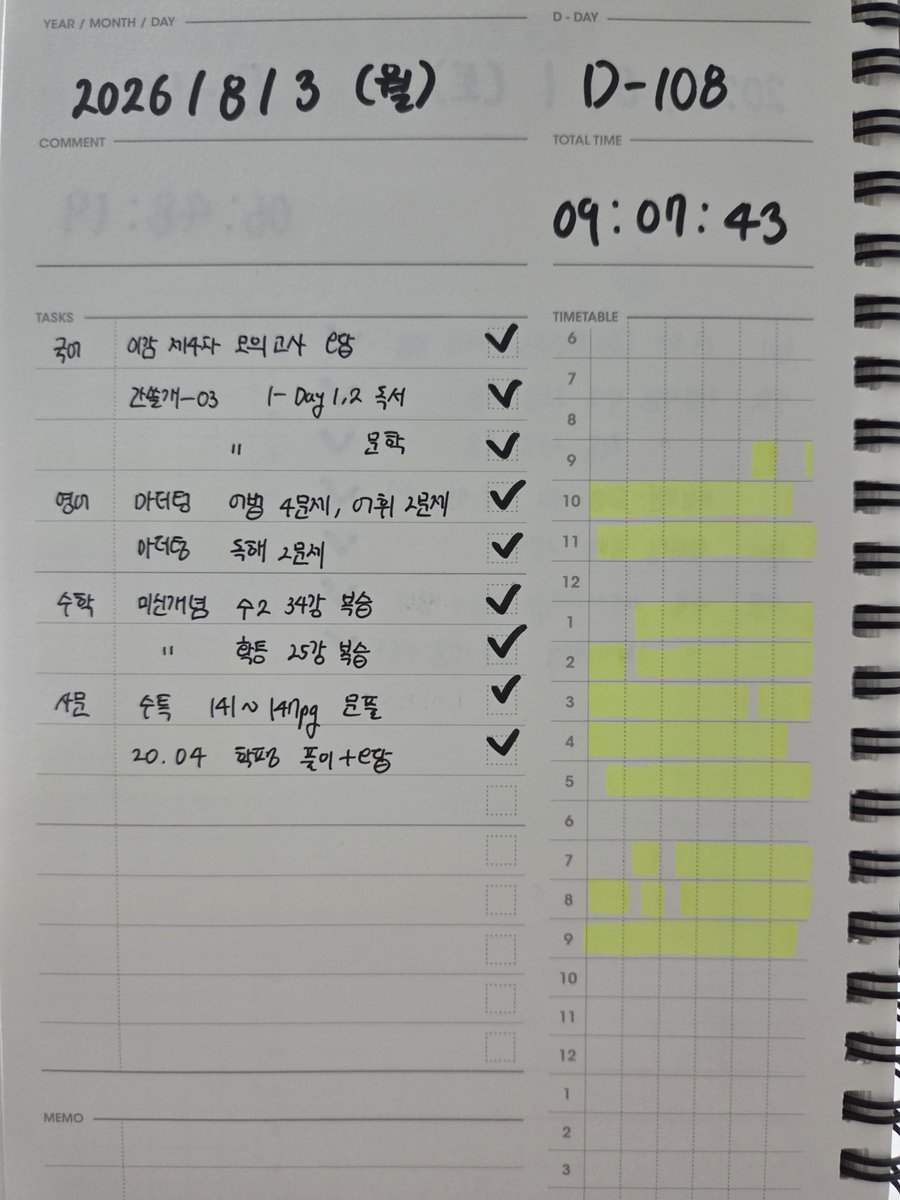 YEAR / MONTH / DAY
D - DAY
2026 / 8 / 3 (월)
D-108
COMMENT
TOTAL TIME
09:07:43
TASKS
TIMETABLE
국어 이감 제4차 모의고사 오답
간쓸개-03 1-Day 1,2 독서
〃 문학
영어 마더텅 어법 4문제, 어휘 2문제
마더텅 독해 2문제
수학 미친개념 수2 34강 복습
〃 확통 25강 복습
사문 수특 141~147pg 문풀
20.04 학평 풀이+오답
6
7
8
9
10
11
12
1
2
3
4
5
6
7
8
9
10
11
12
1
2
3
MEMO